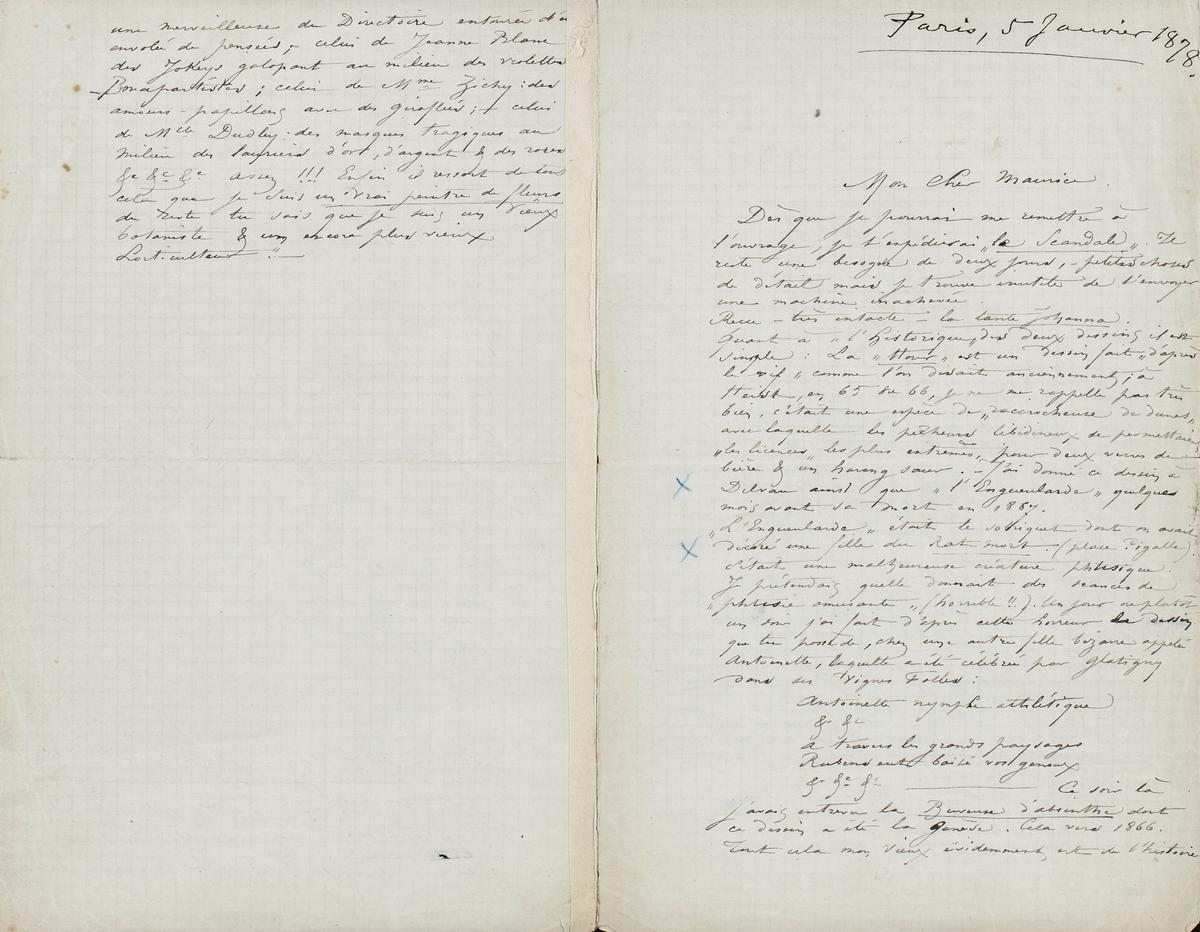 une merveilleuse du Directoire entourée d'
envolée de pensées ; celui de Jeanne Blanc
des Jokeys galopant au milieu des violettes
Bonapartistes ; celui de Mme Zichy : des
amours-papillons avec des giroflées ; celui
de Mlle Dudley : des masques tragiques au
milieu des lauriers d'or, d'argent & des roses
&c &c &c assez !!! Enfin il ressort de tout
cela que je suis un vrai peintre de fleurs
du reste tu sais que je suis un vieux
botaniste & un encore plus vieux
horticulteur !!
Paris, 5 Janvier 1878.
Mon Cher Maurice.
Dès que je pourrai me remettre à
l'ouvrage, je t'expédierai „la Scandale„. Il
reste une besogne de deux jours, - petites choses
de détail mais je trouve inutile de t'envoyer
une machine inachevée.
Recu - très intacte - la tante Johanna.
Quant à „l'historique„ des deux dessins il est
simple : La „ „ est un dessin fait „d'après
le vif„ comme l'on disait anciennement ; à
Heist, en 65 ou 66, je ne me rappelle pas très
bien, c'était une espèce de „raccrocheuse de dunes„
avec laquelle les pêcheurs libidineux se permettaient
„les licences„ les plus extrêmes, pour deux verres de
bière & un hareng saur. - J'ai donné ce dessin à
Delvau ainsi que „l'Engueularde„ quelques
mois avant sa mort en 1867.
„L'Engueularde„ était le sobriquet dont on avait
décoré une fille du Rat mort. (place Pigalle).
C'était une malheureuse créature phtisique.
Je prétendais quelle donnait des séances de
„phtisie amusante„ (horrible !!). Un jour ou plutôt
un soir j'ai fait d'après cette horreur le dessin
que tu possède, chez une autre fille bizarre appelée
Antoinette, laquelle a été célébrée par Glatigny
dans ses Vignes Folles :
Antoinette nymphe athlétique
&c &c
a travers les grands paysages
Rubens eut baisé vos genoux
&c &c &c Ce soir là
j'avais entrevu la Buveuse d'absinthe dont
ce dessin a été la genèse. Cela vers 1866.
Tout cela mon vieux évidemment, est de l'histoire